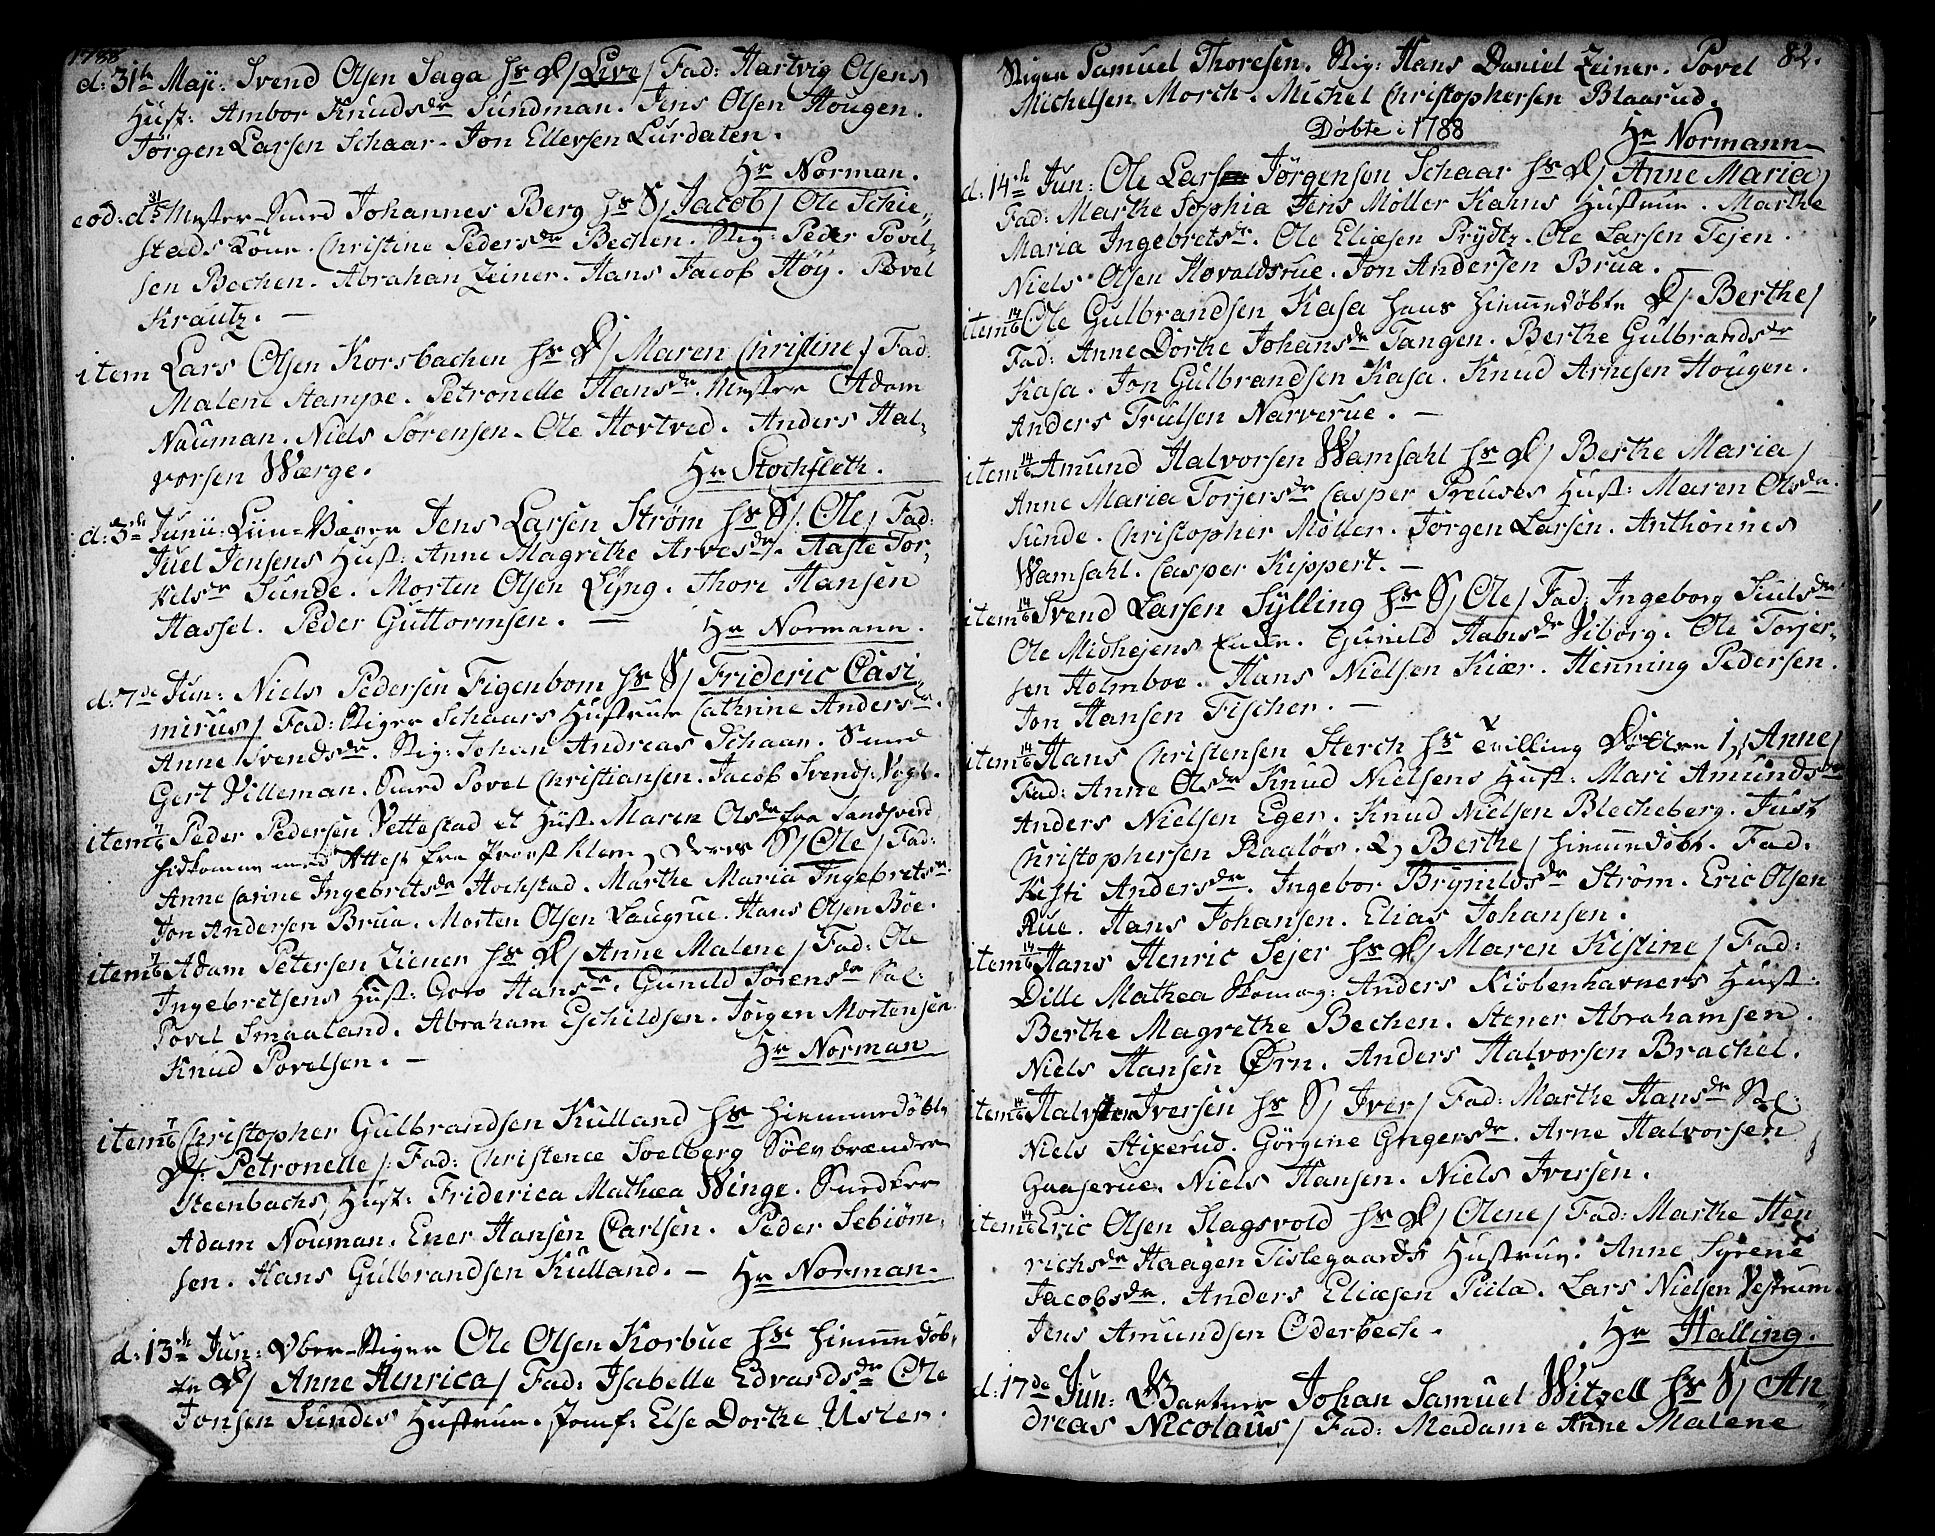 1788
d: 31te Maji: Svend Olsen Saga hs D/ Live/ Fad: Hartvig Olsens
Hust: Ambor Knudsdr Sundman. Jens Olsen Hougen.
Jørgen Larsen Schaar. Jon Ellefsen Lurdalen.
Hr Norman.
eod: d 31/5 Mester-Smed Johannes Berg hs S/ Jacob/ Ole Schie-
stads Kone. Christine Pedersdr Bechen. Stig: Peder Povel-
sen Bechen. Abraham Zeiner. Hans Jacob Høy. Povel
Krautz. —
item Lars Olsen Korsbachen hs D/ Maren Christine/ Fad:
Malene Stampe. Petronelle Hansdr. Mester Adam
Nauman. Niels Sørensen. Ole Hortved. Anders Hal-
vorsen Wærge.
Hr Stochfleth.
d: 3de Junii: Jens Larsen Strøm hs S/. Ole/ Fad:
Juel Jensens Hust: Anne Magrethe Arvesdr. Aaste Tor-
kelsdr Sunde. Morten Olsen Lyng. Thore Hansen
Hassel. Peder Guttormsen. —
Hr Normann.
d: 7de Jun: Niels Pedersen Figenbom hs S/ Frideric Casi-
mirus/ Fad: Stiger Schaars Hustrue Cathrine Andersdr.
Anne Svendsdr. Stig: Johan Andreas Schaar. Smed
Gert Villeman. Smed Povel Christiansen. Jacob Svends: Vogt.
item 7/6 Peder Pedersen Vettestad et Hust. Maren Olsdr fra Sandsverd
hidkomne med Attest fra Provst Klem, deres S/ Ole/ Fad:
Anne Carine Ingebretsdr Hochstad. Marthe Maria Ingebretsdr.
Jon Andersen Brua. Morten Olsen Laugrue. Hans Olsen Bøe.
item 7/6 Adam Petersen Ziener hs D/ Anne Malene/ Fad: Ole
Ingebretsens Hust: Goro Hansdr. Gunild Sørensdr Sal:
Povel Smaaland. Abraham Eschildsen. Jørgen Mortensen.
Knud Povelsen. —
Hr Norman
item 7/6 Christopher Gulbrandsen Kulland hs hiemmedøbte
D/: Petronelle/: Fad: Christence Soelberg Sølvbrænder
Steenbachs Hust: Friderica Mathæa Winge. Smedker
Adam Nouman. Ener Hansen Carlsen. Peder Sebiøm-
sen. Hans Gulbrandsen Kulland. — Hr Norman.
d: 13de Jun: Ober-Stiger Ole Olsen Korbue hs hiemmedøb-
te D/ Anne Henrica/ Fad: Isabelle Edvardsdr Ole
Jonsen Sundes Hustrue. Jomf: Else Dorthe Usler.
82.
Stiger Samuel Thoresen. Stig: Hans Daniel Zeiner. Povel
Michelsen Morch. Michel Christophersen Blaarud.
Døbte i 1788
Hr Normann
d: 14de Jun: Ole Lars Jørgensen Schaar hs D/ Anne Maria/
Fad: Marthe Sophia Jens Møller Kahns Hustrue. Marthe
Maria Ingebretsdr. Ole Eliæsen Prydtz. Ole Larsen Tejen.
Niels Olsen Hovaldsrue. Jon Andersen Brua.
item 14/6 Ole Gulbrandsen Kasa hans hiemmedøbte D/. Berthe/
Fad: Anne Dorthe Johansdr Tangen. Berthe Gulbrandsdr
Kasa. Jon Gulbrandsen Kasa. Knud Arnesen Hougen.
Anders Trulsen Narverue. —
item 14/6 Amund Halvorsen Wamsahl hs D/ Berthe Maria/
Anne Maria Torjersdr Casper Preuses Hust: Maren Olsdr.
Sunde. Christopher Møller. Jørgen Larsen. Anthonnes
Wamsahl. Casper Kippert. —
item 14/6 Svend Larsen Sylling hs S/ Ole/ Fad: Ingeborg Siulsdr
Ole Midhejens Enke. Gunild Hansdr Viborg. Ole Torjer-
sen Holmboe. Hans Nielsen Kiær. Henning Pedersen.
Jon Hansen Fischer. —
item 14/6 Hans Christensen Sterch hs Tvilling Døttre 1) Anne/
Fad: Anne Olsdr Knud Nielsens Hust: Mari Amundsdr
Anders Nielsen Eger. Knud Nielsen Blecheberg. Just
Christophersen Raaløs. 2) Berthe/ hiemmedøbt. Fad.
Kisti Andersdr. Ingebor Brynildsdr Strøm. Eric Olsen
Rue. Hans Johansen. Elias Johansen.
item 14/6 Hans Henric Sejer hs D/ Maren Kistine/ Fad:
Dille Mathea Skomag: Anders Kiøbenhavners Hust:
Berthe Magrethe Bechen. Stener Abrahamsen.
Niels Hansen Ørn. Anders Halvorsen Brachel.
item 14/6 Halvor Iversen hs S/ Iver/ Fad: Marthe Hansdr Sal:
Niels Stixerud. Görgine Gregersdr. Arne Halvorsen
Gaaserue. Niels Hansen. Niels Iversen.
item 14/6 Eric Olsen Slagsvold hs D/ Olene/ Fad: Marthe Hen
richsdr Haagen Tislegaards Hustrue. Anne Syrene
Jacobsdr. Anders Eliæsen Piila. Lars Nielsen Vestrum.
Jens Amundsen Oderbech.
Hr Halling.
d: 17de Jun: Gartner Johan Samuel Witzell hs S/ An-
dreas Nicolaus/ Fad: Madame Anne Malene